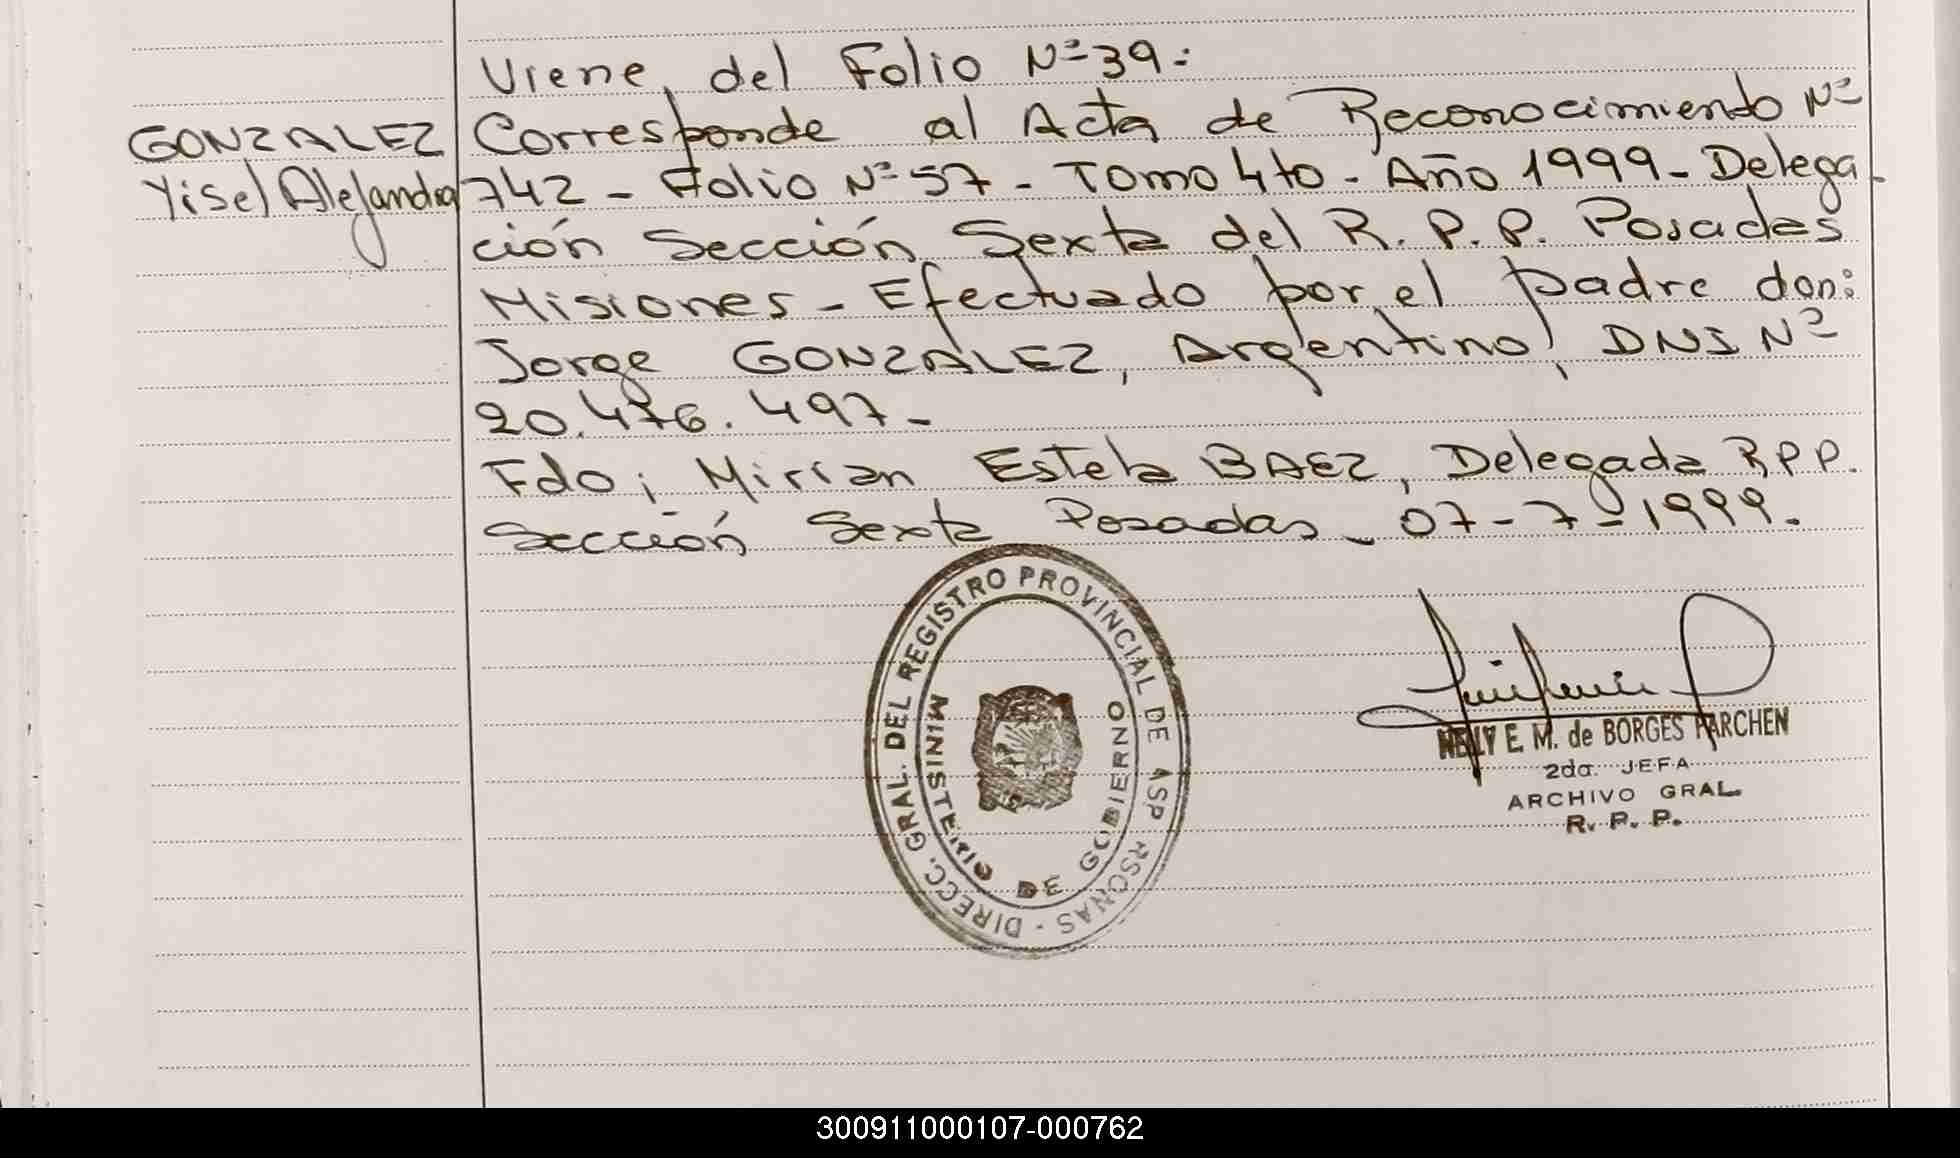 Viene del Folio Nº 39:
GONZALEZ Corresponde al Acta de Reconocimiento Nº
Yisel Alejandra 742 - Folio Nº 57 - Tomo 4to - Año 1999 - Delega-
ción Sección Sexta del R. P. P. Posadas
Misiones - Efectuado por el padre don:
Jorge GONZALEZ, Argentino, DNI Nº
20.476.497-
Fdo: Mirian Estela BAEZ, Delegada R.P.P.
Sección Sexta Posadas - 07-7-1999.
DIRECC. GRAL. DEL REGISTRO PROVINCIAL DE
MINISTERIO DE GOBIERNO
NELLY E. M. de BORGES PARCHEN
2da. JEFA
ARCHIVO GRAL.
R. P. P.
300911000107-000762